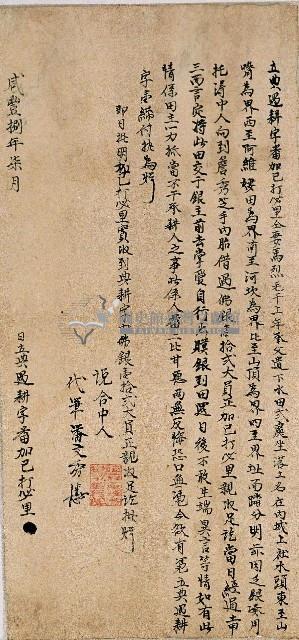 立典過耕字番加已打必里仝妻馬烈毛干上年承父遺下水田弍處坐落土名在內城上社水頭東至山
嘴為界西至阿維埈田為界南至河坎為界北至山頂為界四至界址踏分明亦因乏銀應用
托得中人向到詹秀芝手內胎借過佛銀拾弍大員正加已打必里親收足訖當日經過書
三面言定將此田交于銀主前去掌管自行出贌銀到田還日後不敢生端異言等情如有此
情係田主一力抵當不干承耕人之事此係人番二比甘愿兩無反悔恐口無憑今欲有憑立典過耕
字壹紙付執為照
即日批明加已打必里實收到典耕字內佛銀壹拾弍大員正親收足訖批照
說合中人
代筆潘文
咸豐捌年柒月 日立典過耕字番加已打必里